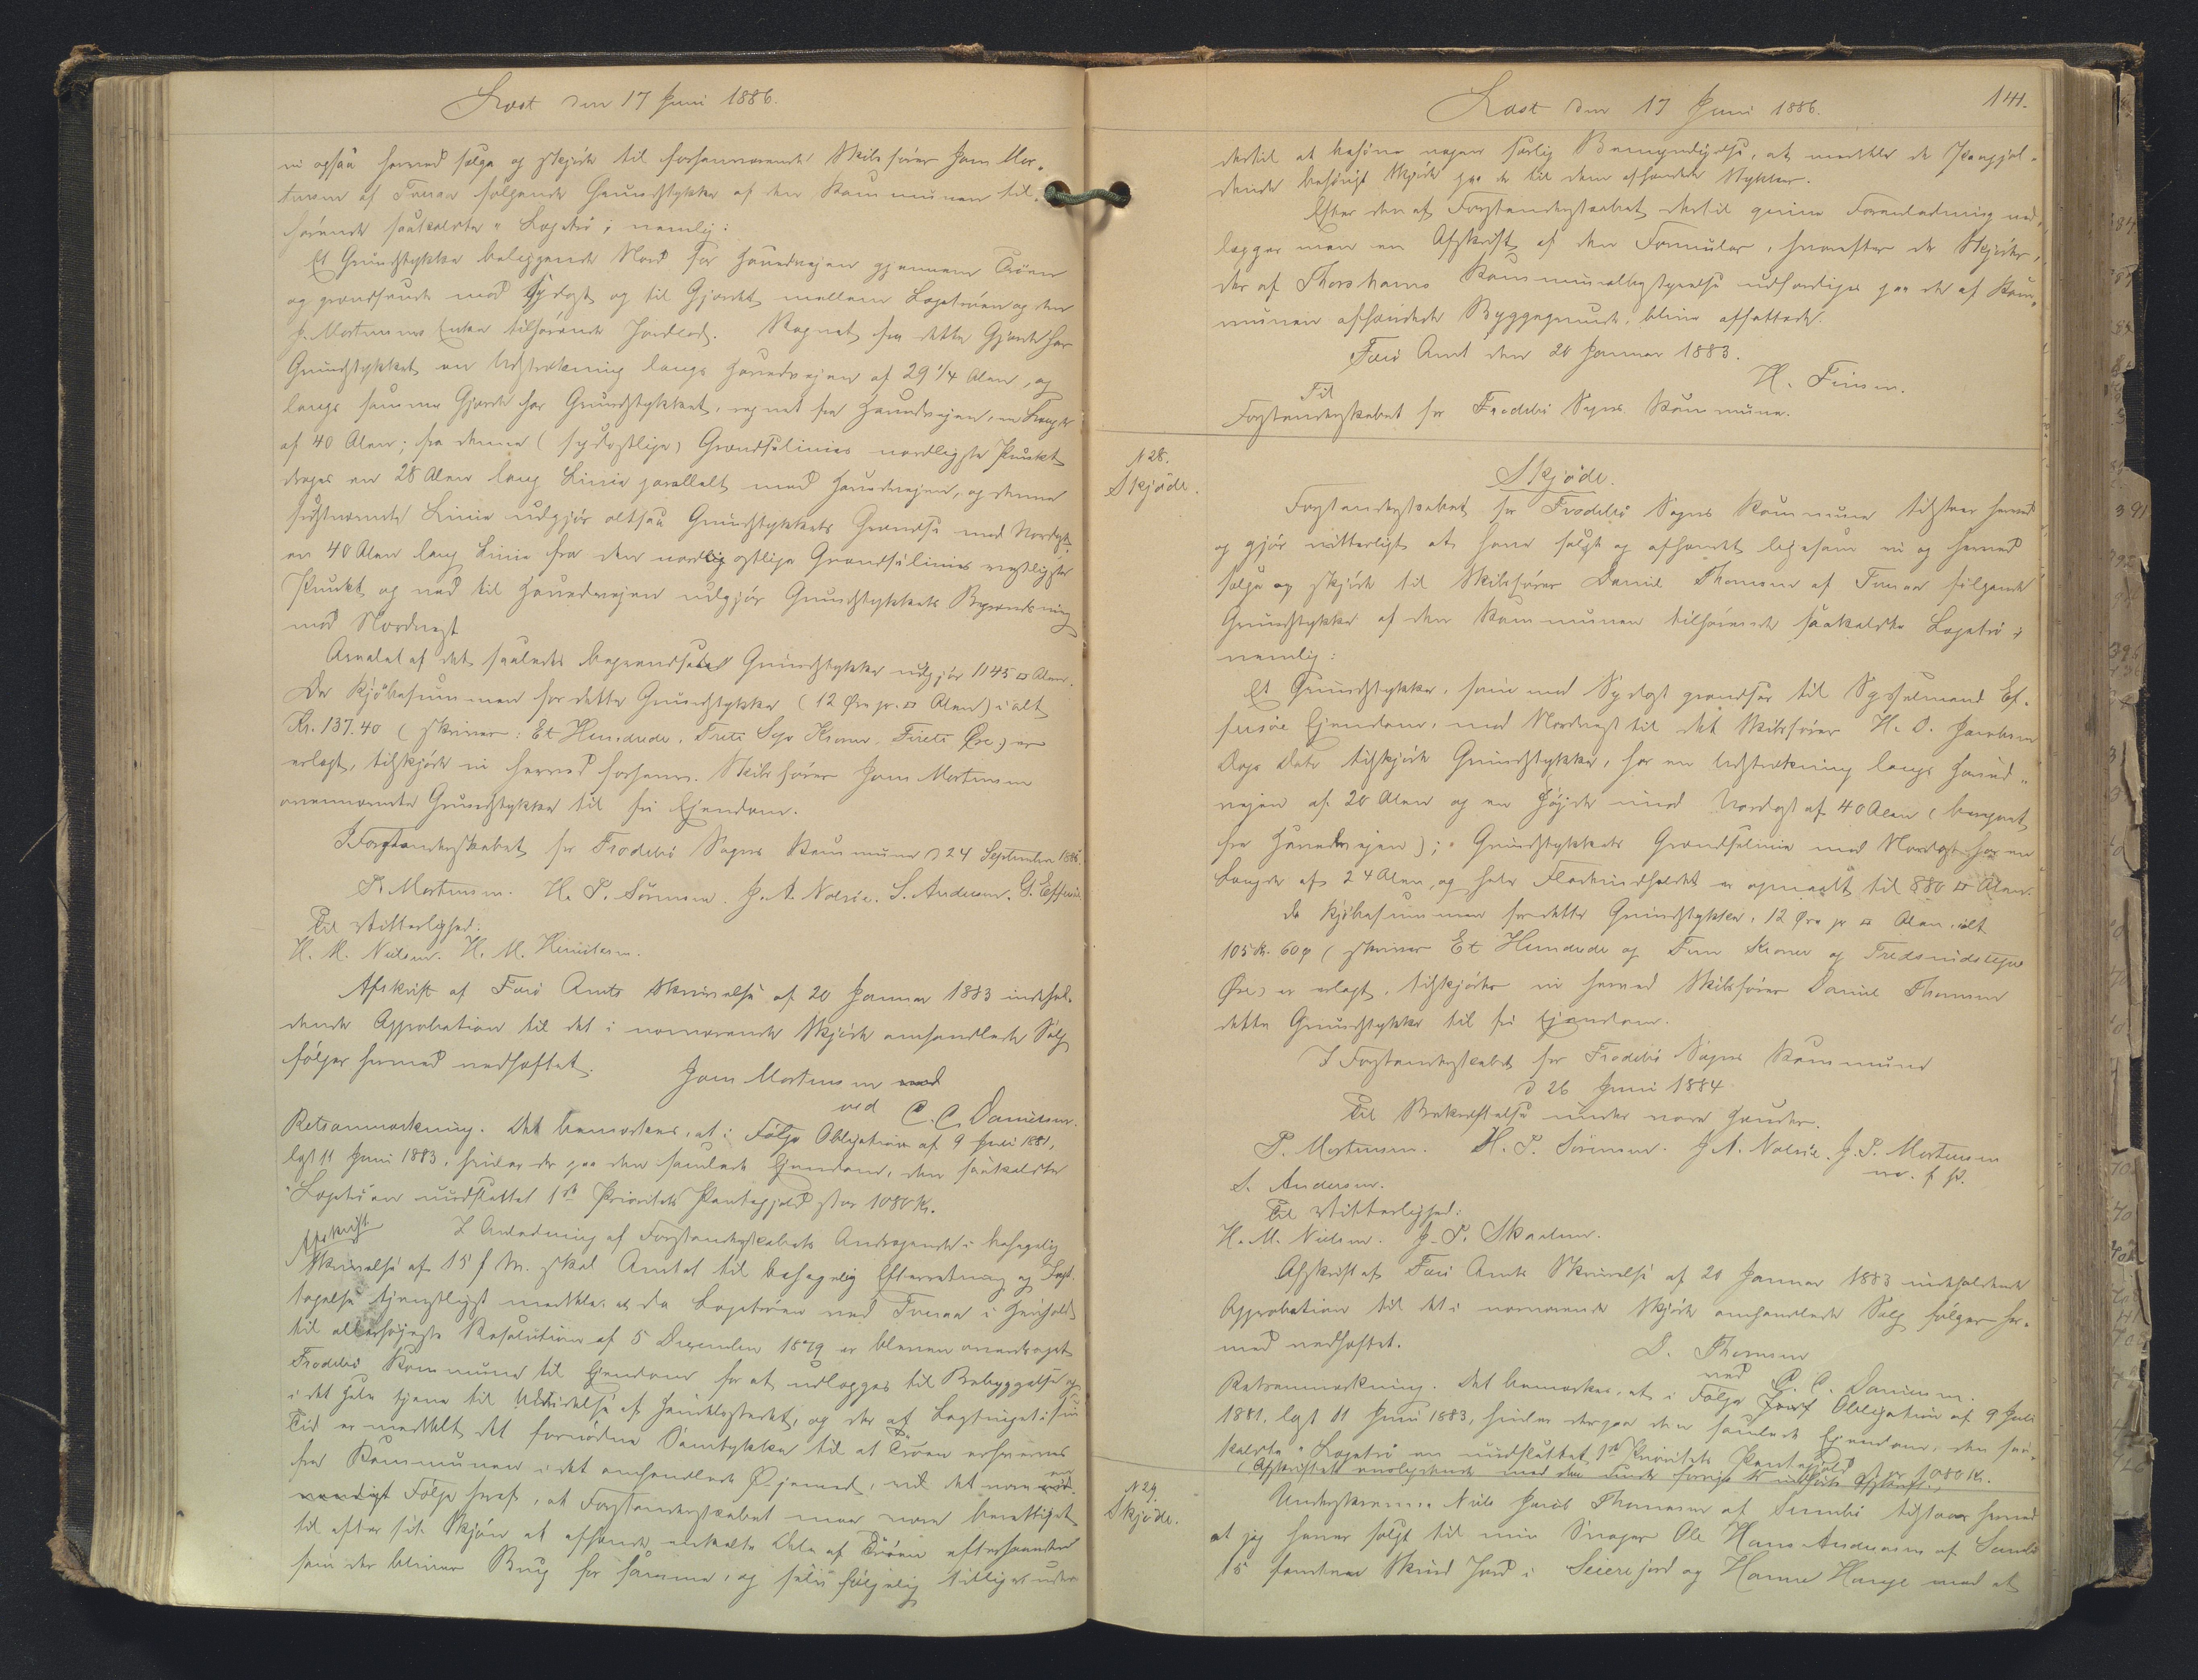 Læst den 17 Juni 1886.
vi ogsaa herved sælge og skjøde til forhenværende Skibsfører Joen Mor-
tensen af Tveraa følgende Grundstykke af den Kommunen til-
hørende saakaldte "Løgetrø" nemlig:
Et Grundstykke beliggende Nord for Hovedvejen gjennem Trøen
og grændsende mod Sydost op til Gjærdet mellem Løgetrøen og den
J. Mortensens Enke tilhørende Jordlod. Regnet fra dette Gjærde har
Grundstykket en Udstrækning langs Hovedvejen af 29 1/4 Alen, og
langs samme Gjærde har Grundstykket, regnet fra Hovedvejen, en Længde
af 40 Alen; fra denne (sydostlige) Grændselinies nordligste Punkt
drages en 28 Alen lang Linie parallelt med Hovedvejen, og denne
sidstnævnte Linie udgjør altsaa Grundstykkets Grændse mod Nordost;
en 40 Alen lang Linie fra den nordostlige Grændselinies vestligste
Punkt og ned til Hovedvejen udgjør Grundstykkets Begrændsning
mod Nordvest
Arealet af det saaledes begrændsede Grundstykke udgjør 1145 □ Alen.
Da Kjøbesummen for dette Grundstykke (12 Øre pr. □ Alen) ialt
Kr. 137.40 (skriver: Et Hundrede, Treti Syv Kroner, Fireti Øre) er
erlagt, tilskjøde vi herved forhenv. Skibsfører Joen Mortensen
ovennævnte Grundstykke til fri Ejendom.
I Forstanderskabet for Frodebø Sogns Kommune d 24 September 1885.
P. Mortensen. H. P. Sørensen. J. A. Nolsøe. S. Andersen. G. Effersøe
Til Vitterlighed:
H. M. Nielsen. H. M. Henriksen.
Afskrift af Færø Amts Skrivelse af 20 Januar 1883 indehol-
dende Approbation til det i nærværende Skjøde omhandlede Salg
følger hermed vedhæftet.
Joen Mortensen
ved C. C. Danielsen.
Retsanmærkning. Det bemærkes, at i Følge Obligation af 9 Juli 1881,
læst 11 Juni 1883, hviler der paa den samlede Ejendom, den saakaldte
"Løgetrøen" uudslettet 1ste Prioritets Pantegjæld stor 1080 Kr.
Afskrift I Anledning af Forstanderskabets Andragende i behagelig
Skrivelse af 15 f. M. skal Amtet til behagelig Efterretning og Iagt-
tagelse tjenstligst meddele, at da Løgetrøen ved Tveraa i Henhold
til allerhøjeste Resolution af 5 December 1879 er bleven overdraget
Frodebø Kommune til Ejendom for at udlægges til Bebyggelse og
i det Hele tjene til Udvidelse af Handelsstedet, og der af Lagtinget i sin
Tid er meddelt det fornødne Samtykke til at Trøen erhverves
for Kommunen i det omhandlede Øjemed, vil det være en nød-
vendig Følge heraf, at Forstanderskabet maa være berettiget
til efter sit Skjøn at afhænde enkelte Dele af Trøen efterhaanden
som der bliver Brug for samme, og selv følgelig tilligemed uden
Læst den 17 Juni 1886.
141.
dertil at behøve nogen særlig Bemyndigelse, at meddele de Paagjæl-
dende behørigt Skjøde paa de til dem afhændede Stykker.
Efter den af Forstanderskabet dertil givne Foranledning ved-
lægges man en Afskrift af den Formular, hvorefter de Skjøder,
der af Thorshavns Kommunalbestyrelse udfærdiges paa de af Kom-
munen afhændede Byggegrunde, blive affattede.
Færø Amt den 20 Januar 1883.
H. Finsen.
Til
Forstanderskabet for Frodebø Sogns Kommune.
N 28.
Skjøde.
Skjøde.
Forstanderskabet for Frodebø Sogns Kommune tilstaar herved
og gjør vitterligt at have solgt og afhændet ligesom vi og herved
sælge og skjøde til Skibsfører Daniel Thomsen af Tveraa følgende
Grundstykke af den Kommunen tilhørende saakaldte Løgetrø
nemlig:
Et Grundstykke, som mod Sydost grændser til Sysselmand Ef-
fersøe Ejendom, mod Nordvest til det Skibsfører H. D. Jacobsen
Dags Dato tilskjøde Grundstykke, har en Udstrækning langs Hoved-
vejen af 20 Alen og en Højde imod Nordost af 40 Alen (beregnet
fra Hovedvejen); Grundstykkets Grændselinie mod Nordost har en
Længde af 24 Alen, og hele Fladeindholdet er opmaalt til 880 □ Alen.
Da Kjøbesummen for dette Grundstykke, 12 Øre pr □ Alen, ialt
105 Kr. 60 ø (skriver Et Hundrede og Fem Kroner og Tredsindstyve
Øre) er erlagt, tilskjøde vi herved Skibsfører Daniel Thomsen
dette Grundstykke til fri Ejendom.
I Forstanderskabet for Frodebø Sogns Kommune
d 26 Juni 1884
Til Bekræftelse under vore Hænder.
P. Mortensen. H. P. Sørensen. J. A. Nolsøe. J. P. Mortensen
m. f. P.
S. Andersen.
Til Vitterlighed:
H. M. Nielsen. J. P. Skaalum.
Afskrift af Færø Amts Skrivelse af 20 Januar 1883 indeholdende
Approbation til det i nærværende Skjøde omhandlede Salg følger her-
med vedhæftet.
D. Thomsen
ved C. C. Danielsen.
Retsanmærkning. Det bemærkes, at i Følge Obligation af 9 Juli
1881, læst 11 Juni 1883, hviler der paa den samlede Ejendom, den saa-
kaldte "Løgetrø" en uudslettet 1ste Prioritets Pantegjæld stor 1080 Kr.
(Afskriften enslydende med den under forrige Nr indførte Afskrift.)
N 29.
Skjøde.
Underskrevne Niels Jacob Thomasen af Sumbø tilstaar herved
at jeg haver solgt til min Svoger Ole Hans Andreasen af Sumbø
15 femten Skind Jord i Seierejord og Hanne Hauge med at